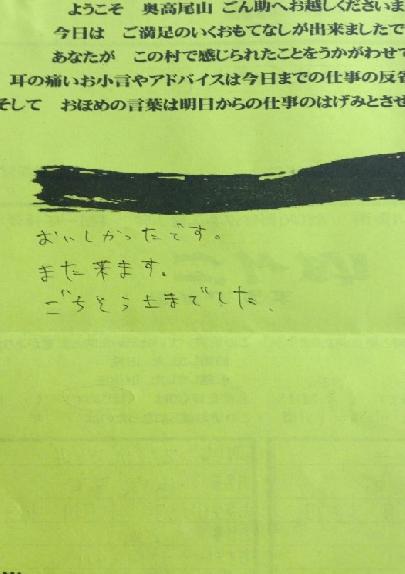 ようこそ 奥高尾山 ごん助へお越しくださいま
今日は ご満足のいくおもてなしが出来ましたで
あなたが この村で感じられたことをうかがわせて
耳の痛いお小言やアドバイスは今日までの仕事の反省
そして おほめの言葉は明日からの仕事のはげみとさせ
おいしかったです。
また来ます。
ごちそうさまでした、